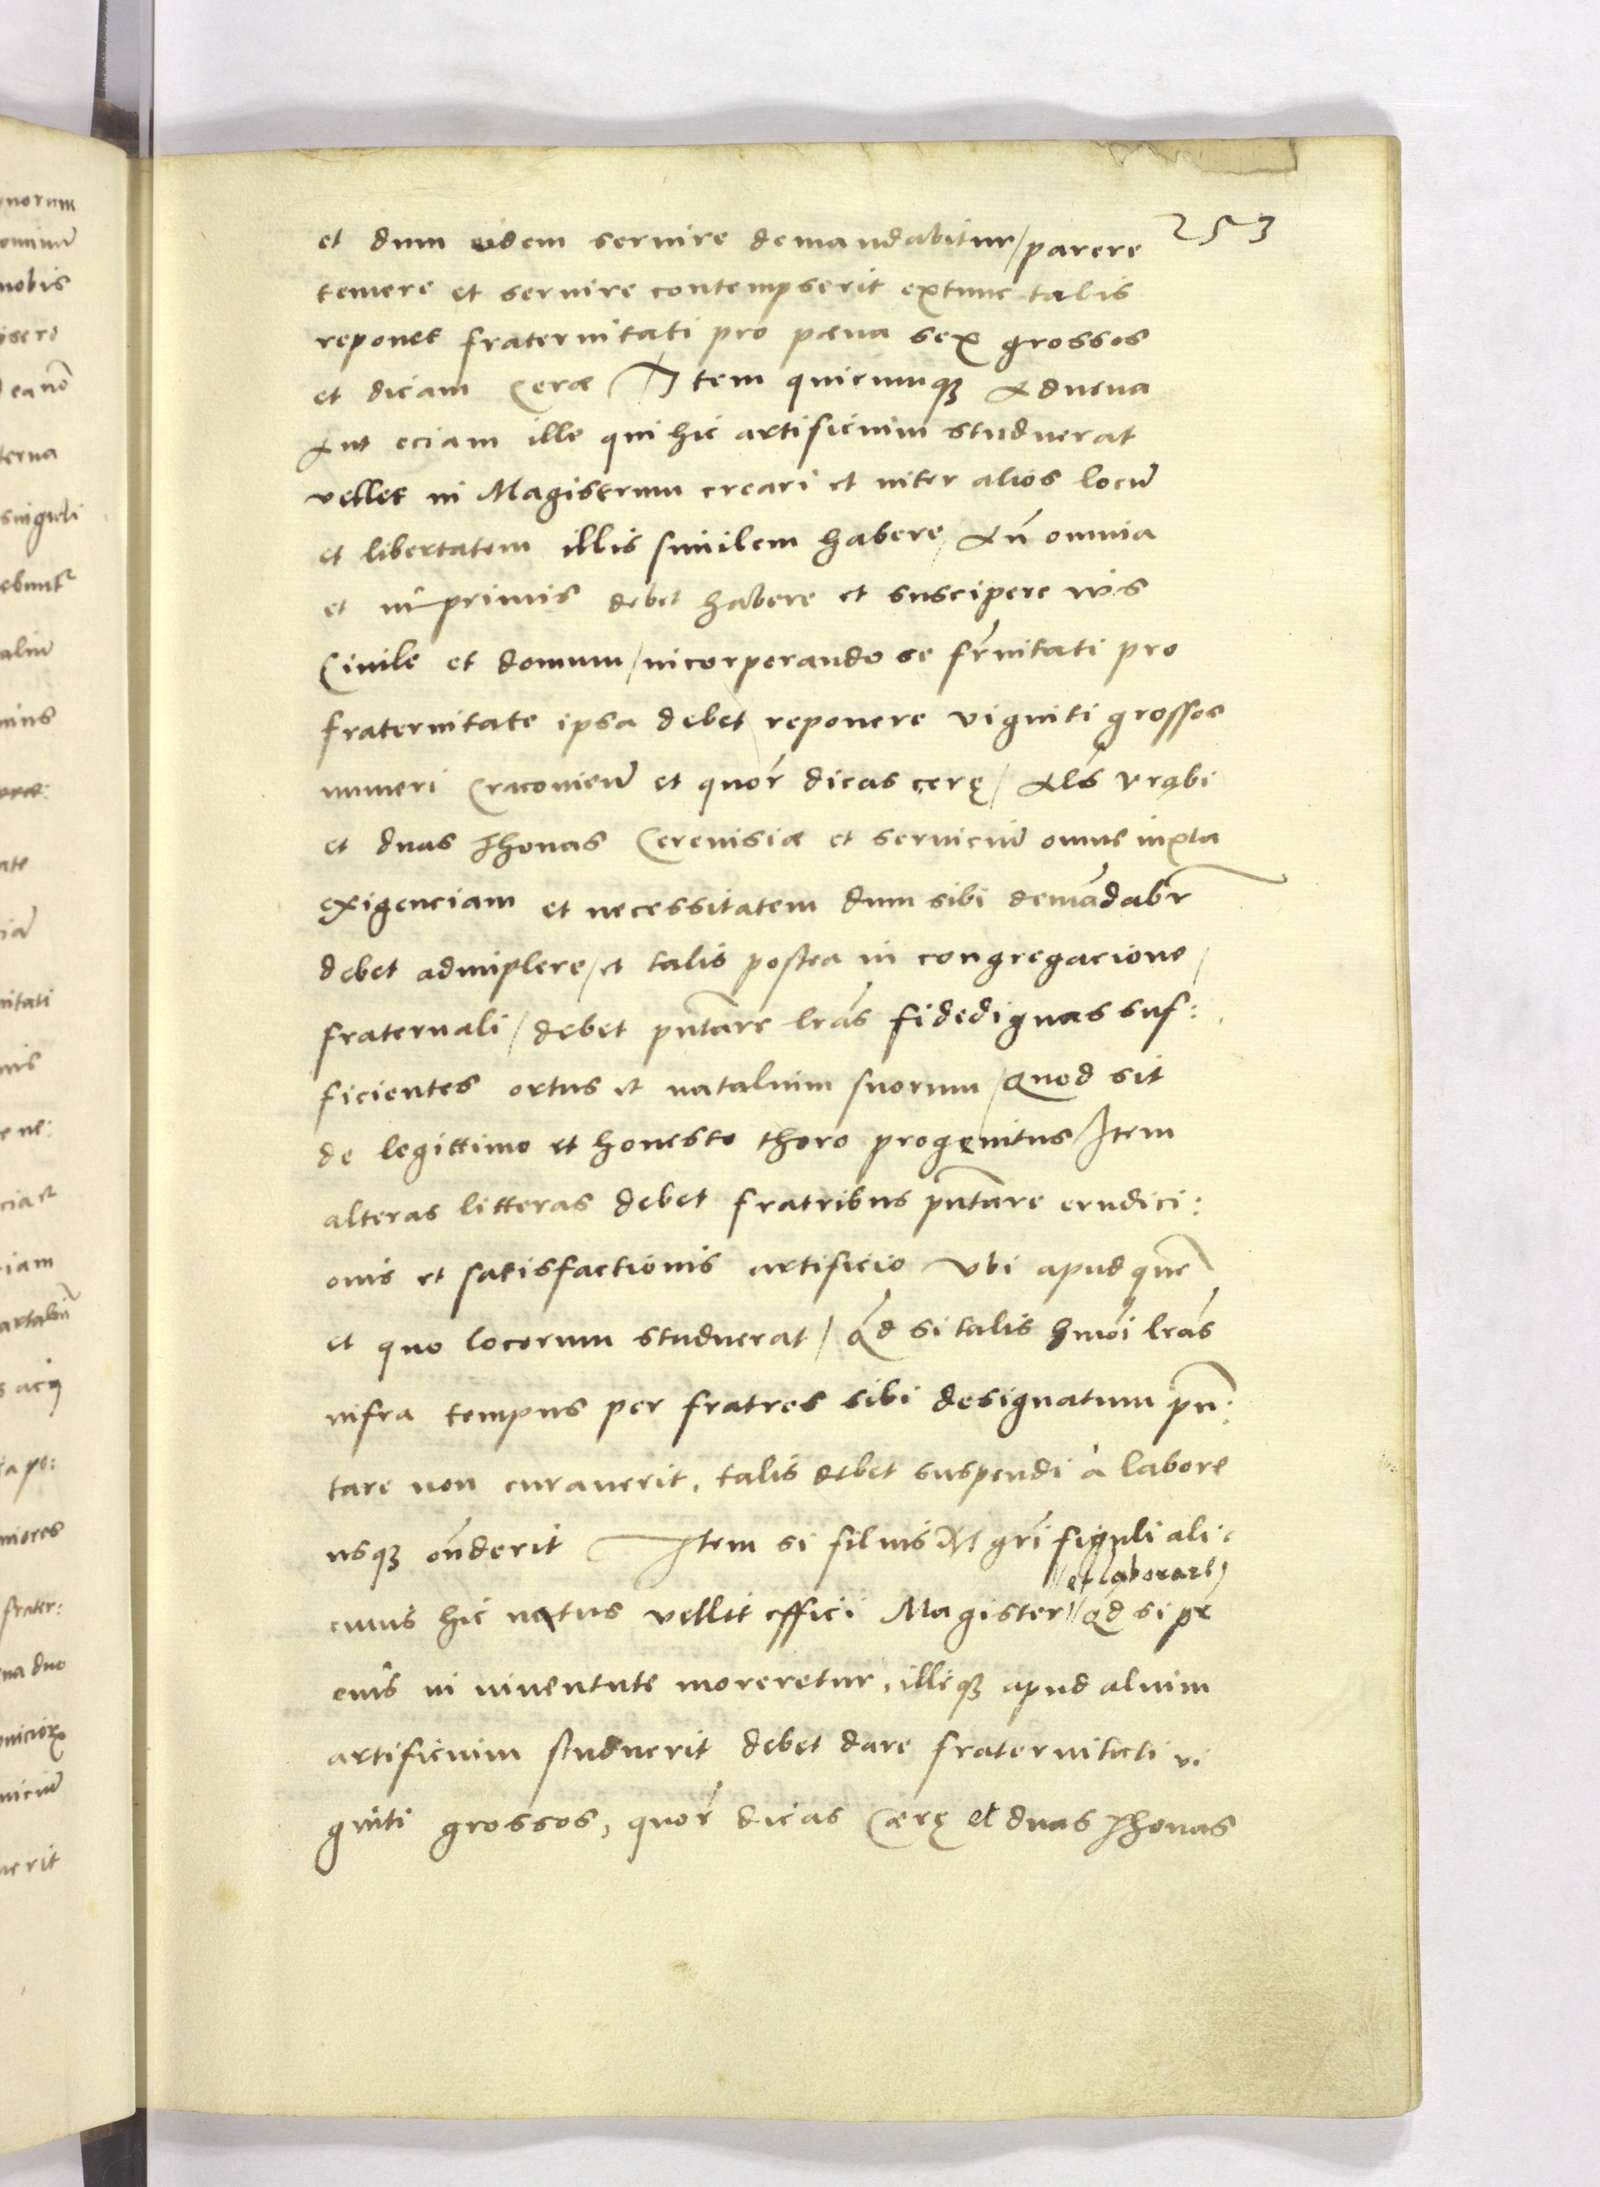 253
et dum eidem seruire demandabitur / parere
temere et seruire contempserit extunc talis
reponet fraternitati pro pœna sex grossos
et dicam Ceræ Item quicunqꝫ Aduena
Aut eciam ille qui hic artificium studuerat
vellet in Magistrum creari et inter alios locū
et libertatem illis similem habere / Añ omnia
et in primis debet habere et suscipere ius
Ciuile et domum / incorporando se fr̃nitati pro
fraternitate ipsa debet reponere viginti grossos
numeri Cracouień et quor̃ dicas cerę / Als̃ vrąbi
et duas Thonas Cereuisiæ et seruiciū omne iuxta
exigenciam et necessitatem dum sibi demãdabr̃
debet adimplere / et talis postea in congregacione /
fraternali / debet pñtare lr̃as fidedignas suf:
ficientes ortus et natalium suorum / Quod sit
de legittimo et honesto thoro progenitus / Item
alteras litteras debet fratribus pñtare erudici:
onis et satisfactionis artificio Vbi apud quē
et quo locorum studuerat / Qd̃ si talis hmõi lr̃as
infra tempus per fratres sibi designatum pñ:
tare non curauerit, talis debet suspendi à labore
usqꝫ oñderit Item si filius Mgr̃i figuli ali:
et laborare
cuius hic natus vellet effici Magister // Qd̃ si pr̃
eius in iuuentute moreretur, illeqꝫ apud alium
artificium studuerit debet dare fraternitati vi
ginti grossos, quor̃ dicas Cærę et duas Thonas
norum
nobis
terna
singuli
ebuntr
nitati
iam
niores
frater:
na duo
uerit